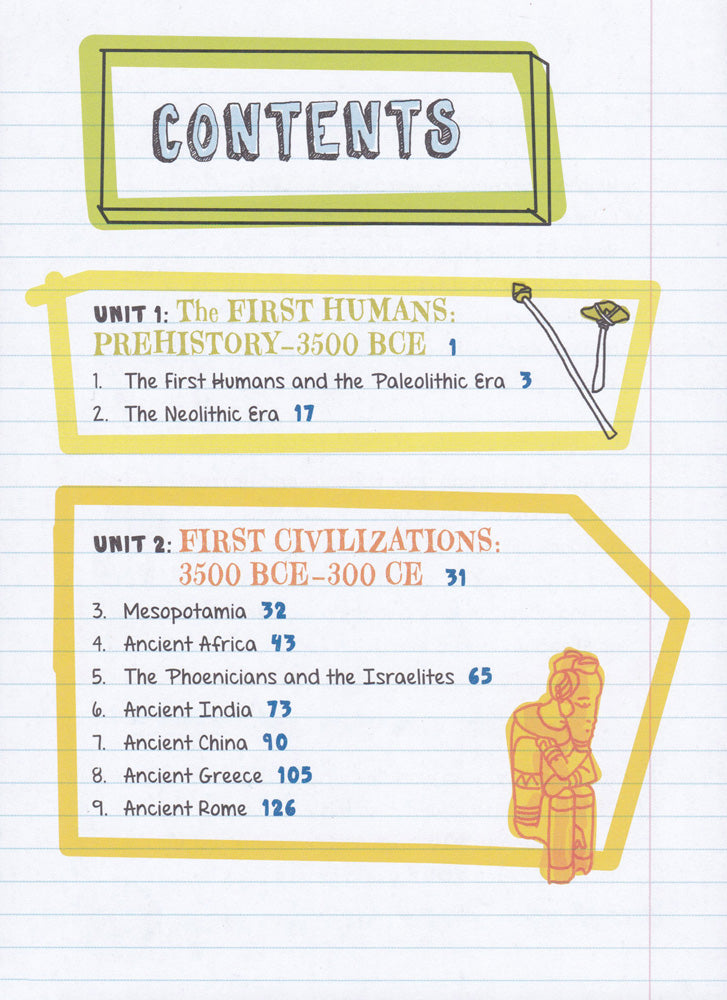 CONTENTS
UNIT 1: The FIRST HUMANS:
PREHISTORY–3500 BCE 1
1. The First Humans and the Paleolithic Era 3
2. The Neolithic Era 17
UNIT 2: FIRST CIVILIZATIONS:
3500 BCE–300 CE 31
3. Mesopotamia 32
4. Ancient Africa 43
5. The Phoenicians and the Israelites 65
6. Ancient India 73
7. Ancient China 90
8. Ancient Greece 105
9. Ancient Rome 126